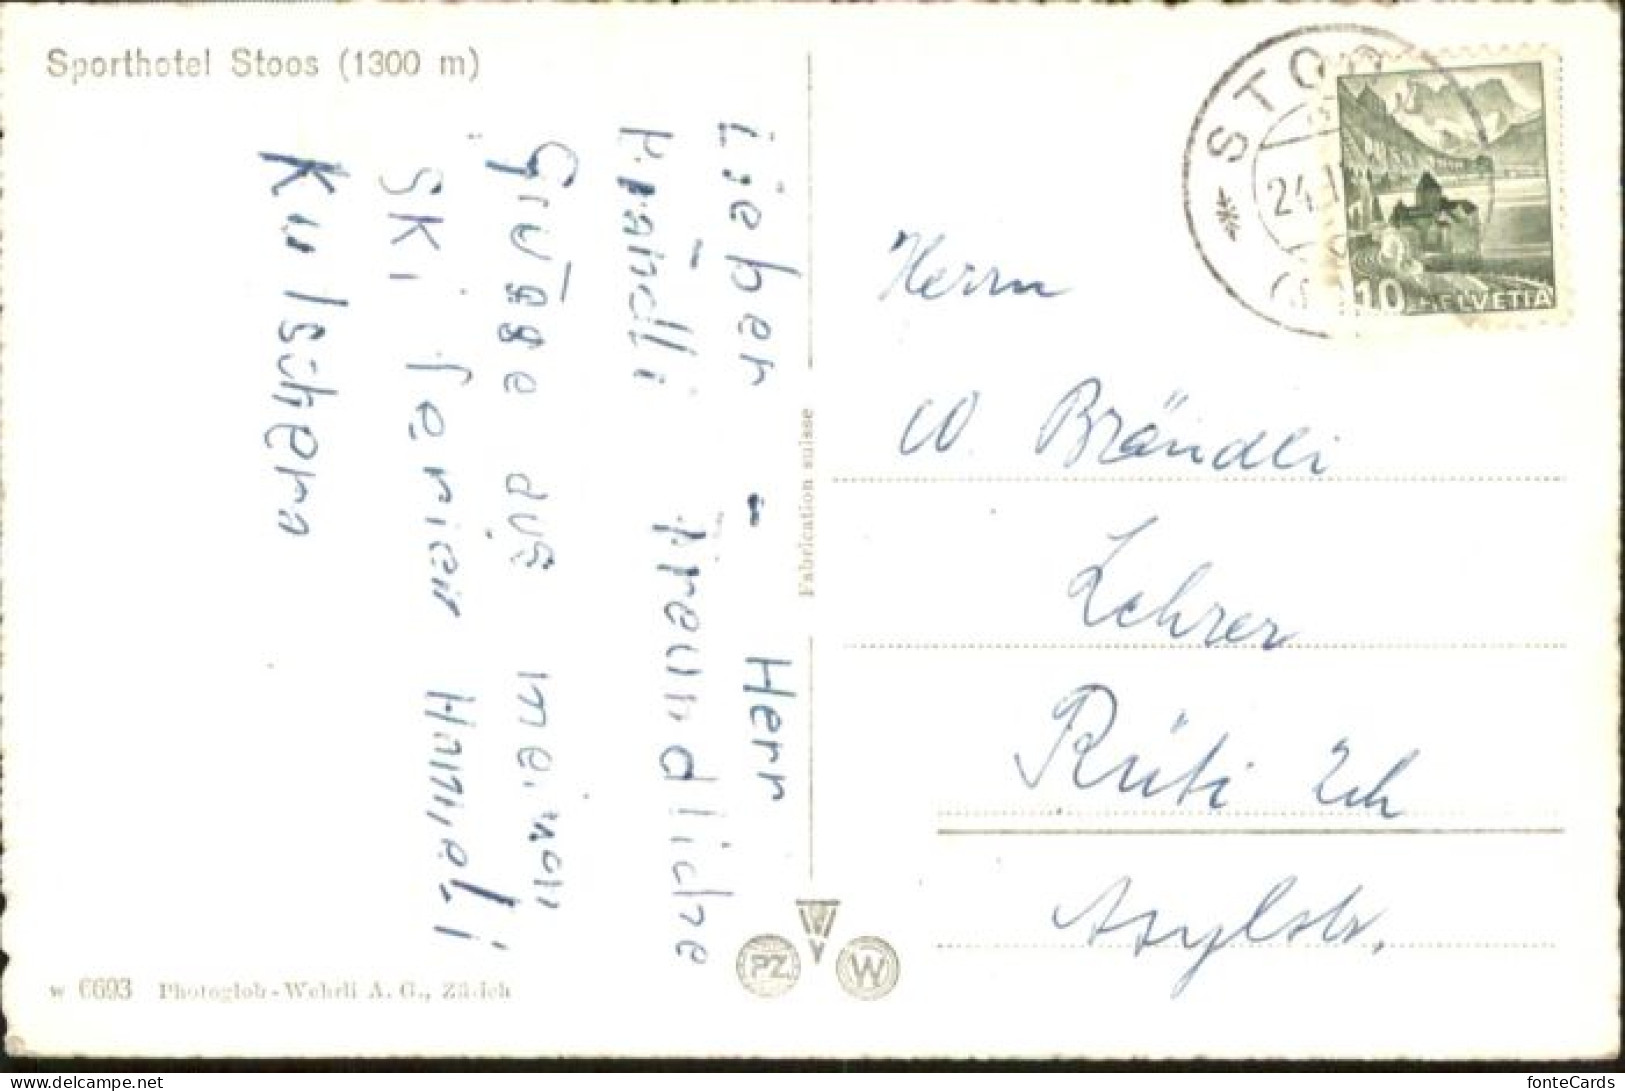 Sporthotel Stoos (1300 m)
Lieber Herr
Brändli Freundliche
Grüsse aus meinen
Ski ferien Hansueli
Kutschera
Fabrication suisse
STOO
24.
10 HELVETIA
Herrn
W. Brändli
Lehrer
Rüti Zch
Asylstr.
PZ W
w 6693 Photoglob-Wehrli A. G., Zürich
delcampe.net
fonteCards